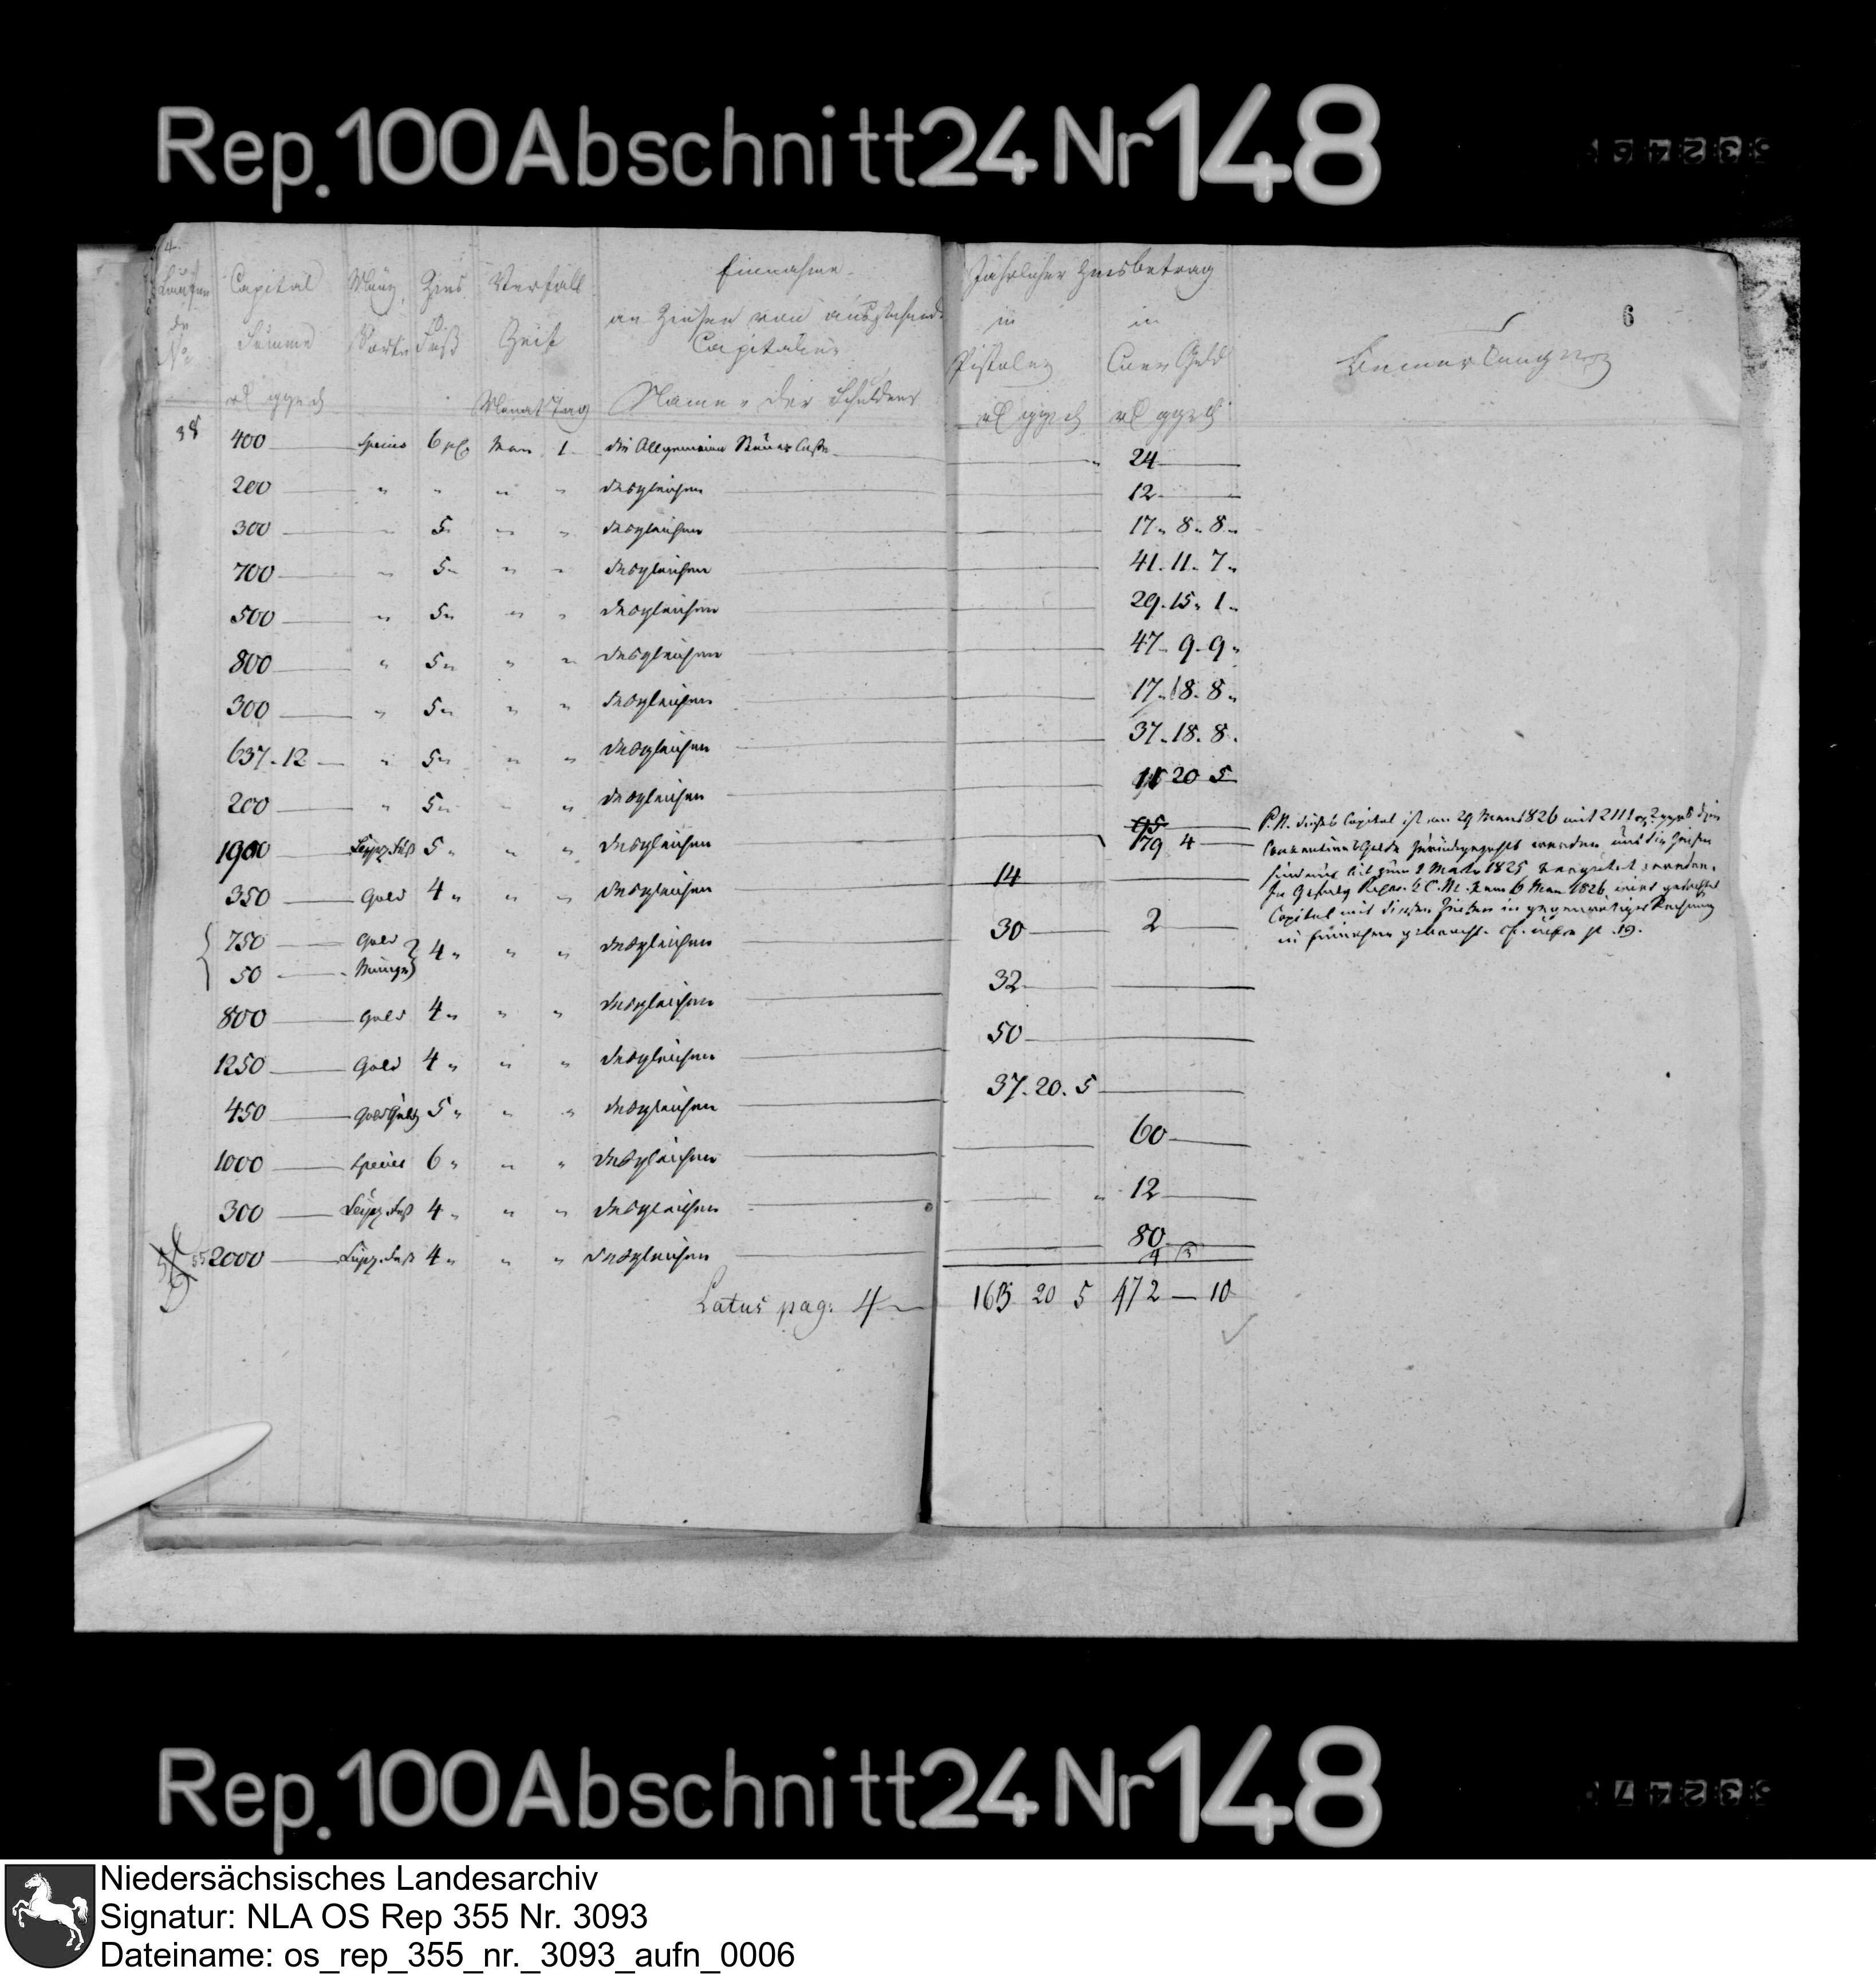 Rep. 100 Abschnitt 24 Nr 148
4
6
Laufende No
Capital Summe
Münz Sorte
Zins Fuß
Verfall Zeit
Einnahme
an Zinsen von ausstehend.
Capitalien
Jährlicher Zinsbetrag
in Pistolen
in Conv Geld
Bemerkungen
rl ggr d
Monat Tag
Name der Schuldner
rl ggr d
rl ggr d
38 400 Species 6 pC. May 1 die Allgemeine Steuer Casse " 24
200 " " " " desgleichen 12
300 " 5 " " desgleichen 17 " 8 " 8 "
700 " 5 " " " desgleichen 41. 11. 7 "
500 " 5 " " " desgleichen 29. 15. 1 "
800 " 5 " " " desgleichen 47 " 9 " 9 "
300 " 5 " " " desgleichen 17 " 18. 8 "
637. 12 " 5 " " " desgleichen 37. 18. 8.
200 " 5 " " " desgleichen 11 20 5
1900 Leipz. Fuß 5 " " " desgleichen 95
179 4
350 Gold 4 " " " desgleichen 14
750 Gold
50 Münze 4 " " " desgleichen 30 2
800 Gold 4 " " " desgleichen 32
1250 Gold 4 " " " desgleichen 50
450 Goldgüld 5 " " " desgleichen 37. 20. 5
1000 Species 6 " " " desgleichen 60
300 Leipz. Fuß 4 " " " desgleichen " 12
55 2000 Leipz. Fuß 4 " " " desgleichen 80
Latus pag: 4 163 20 5 472 — 10
P. N. dieses Capital ist am 29 May 1826 mit 2111 2 ggr
Conventions Gelde zurückgezahlt worden und die Zinsen
sind nur bis zum 1 May 1825 vergütet worden.
In Gefolg 6 May 1826 wird
Capital mit diesen Zinsen in gegenwärtiger Rechnung
in Einnahme gebracht. cf. infra p. 19.
Rep. 100 Abschnitt 24 Nr 148
Niedersächsisches Landesarchiv
Signatur: NLA OS Rep 355 Nr. 3093
Dateiname: os_rep_355_nr._3093_aufn_0006